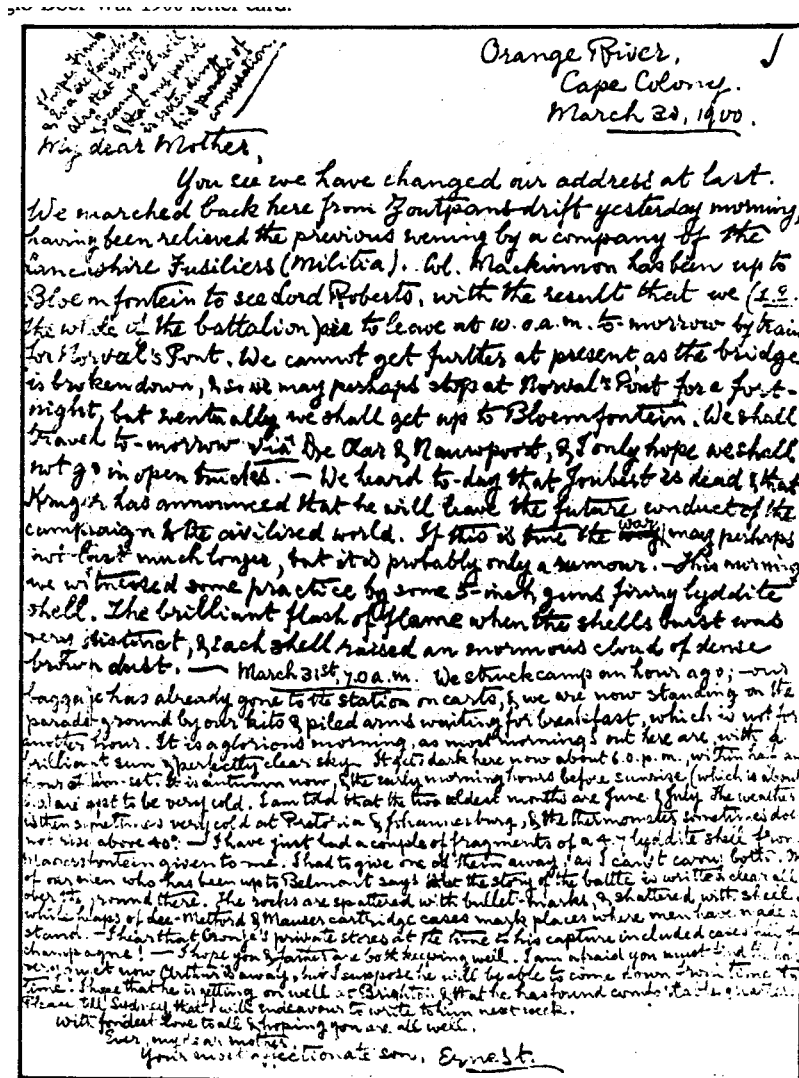 Boer War 1900 letter card.
Orange River,
Cape Colony.
March 30, 1900.
I hope Frank
& Eva are
also that
& that my
is
his
My dear Mother,
You see we have changed our address at last.
We marched back here from Zoutpansdrift yesterday morning,
having been relieved the previous evening by a company of the
Lancashire Fusiliers (Militia). Col. Mackinnon has been up to
Bloemfontein to see Lord Roberts, with the result that we (i.e.
the whole of the battalion) are to leave at 10.0 a.m. to-morrow by train
for Norval's Pont. We cannot get further at present, as the bridge
is broken down, & so we may perhaps stop at Norval's Pont for a fort-
night, but eventually we shall get up to Bloemfontein. We shall
travel to-morrow via De Aar & Naauwpoort, & I only hope we shall
not go in open trucks. — We heard to-day that Joubert is dead & that
Kruger has announced that he will leave the future conduct of the
campaign to the civilised world. If this is true the war may perhaps
not last much longer, but it is probably only a rumour. — This morning
we witnessed some practice by some 5-inch guns firing lyddite
shell. The brilliant flash of flame when the shells burst was
very distinct, & each shell raised an enormous cloud of dense
brown dust. — March 31st, 7.0 a.m. We struck camp an hour ago; — our
baggage has already gone to the station on carts, & we are now standing on the
parade-ground by our kits & piled arms waiting for breakfast, which is not for
another hour. It is a glorious morning, as most mornings out here are, with a
brilliant sun & perfectly clear sky. It gets dark here now about 6.0 p.m., within half an
hour of sun-set. It is autumn now, & the early morning hours before sunrise (which is about
are apt to be very cold. I am told that the two coldest months are June & July. The weather
is then sometimes very cold at Pretoria & Johannesburg, & the thermometer sometimes does
not rise above 40°. — I have just had a couple of fragments of a 4.7 lyddite shell from
Magersfontein given to me. I had to give one of them away, as I can't carry both.
of our men who has been up to Belmont says that the story of the battle is written clear all
over the ground there. The rocks are spattered with bullet-marks, & shattered with shell,
while heaps of Lee-Metford & Mauser cartridge cases mark places where men have made a
stand. — I hear that Cronje's private stores at the time of his capture included cases of
champagne! — I hope you & father are both keeping well. I am afraid you must find the
very quiet now Arthur is away, but I suppose he will be able to come down from time to
time. I hope that he is getting on well at Brighton & that he has found
Please tell Sydney that I will endeavour to write to him next week.
With fondest love to all & hoping you are all well.
Ever, my dear mother,
Your most affectionate son, Ernest.